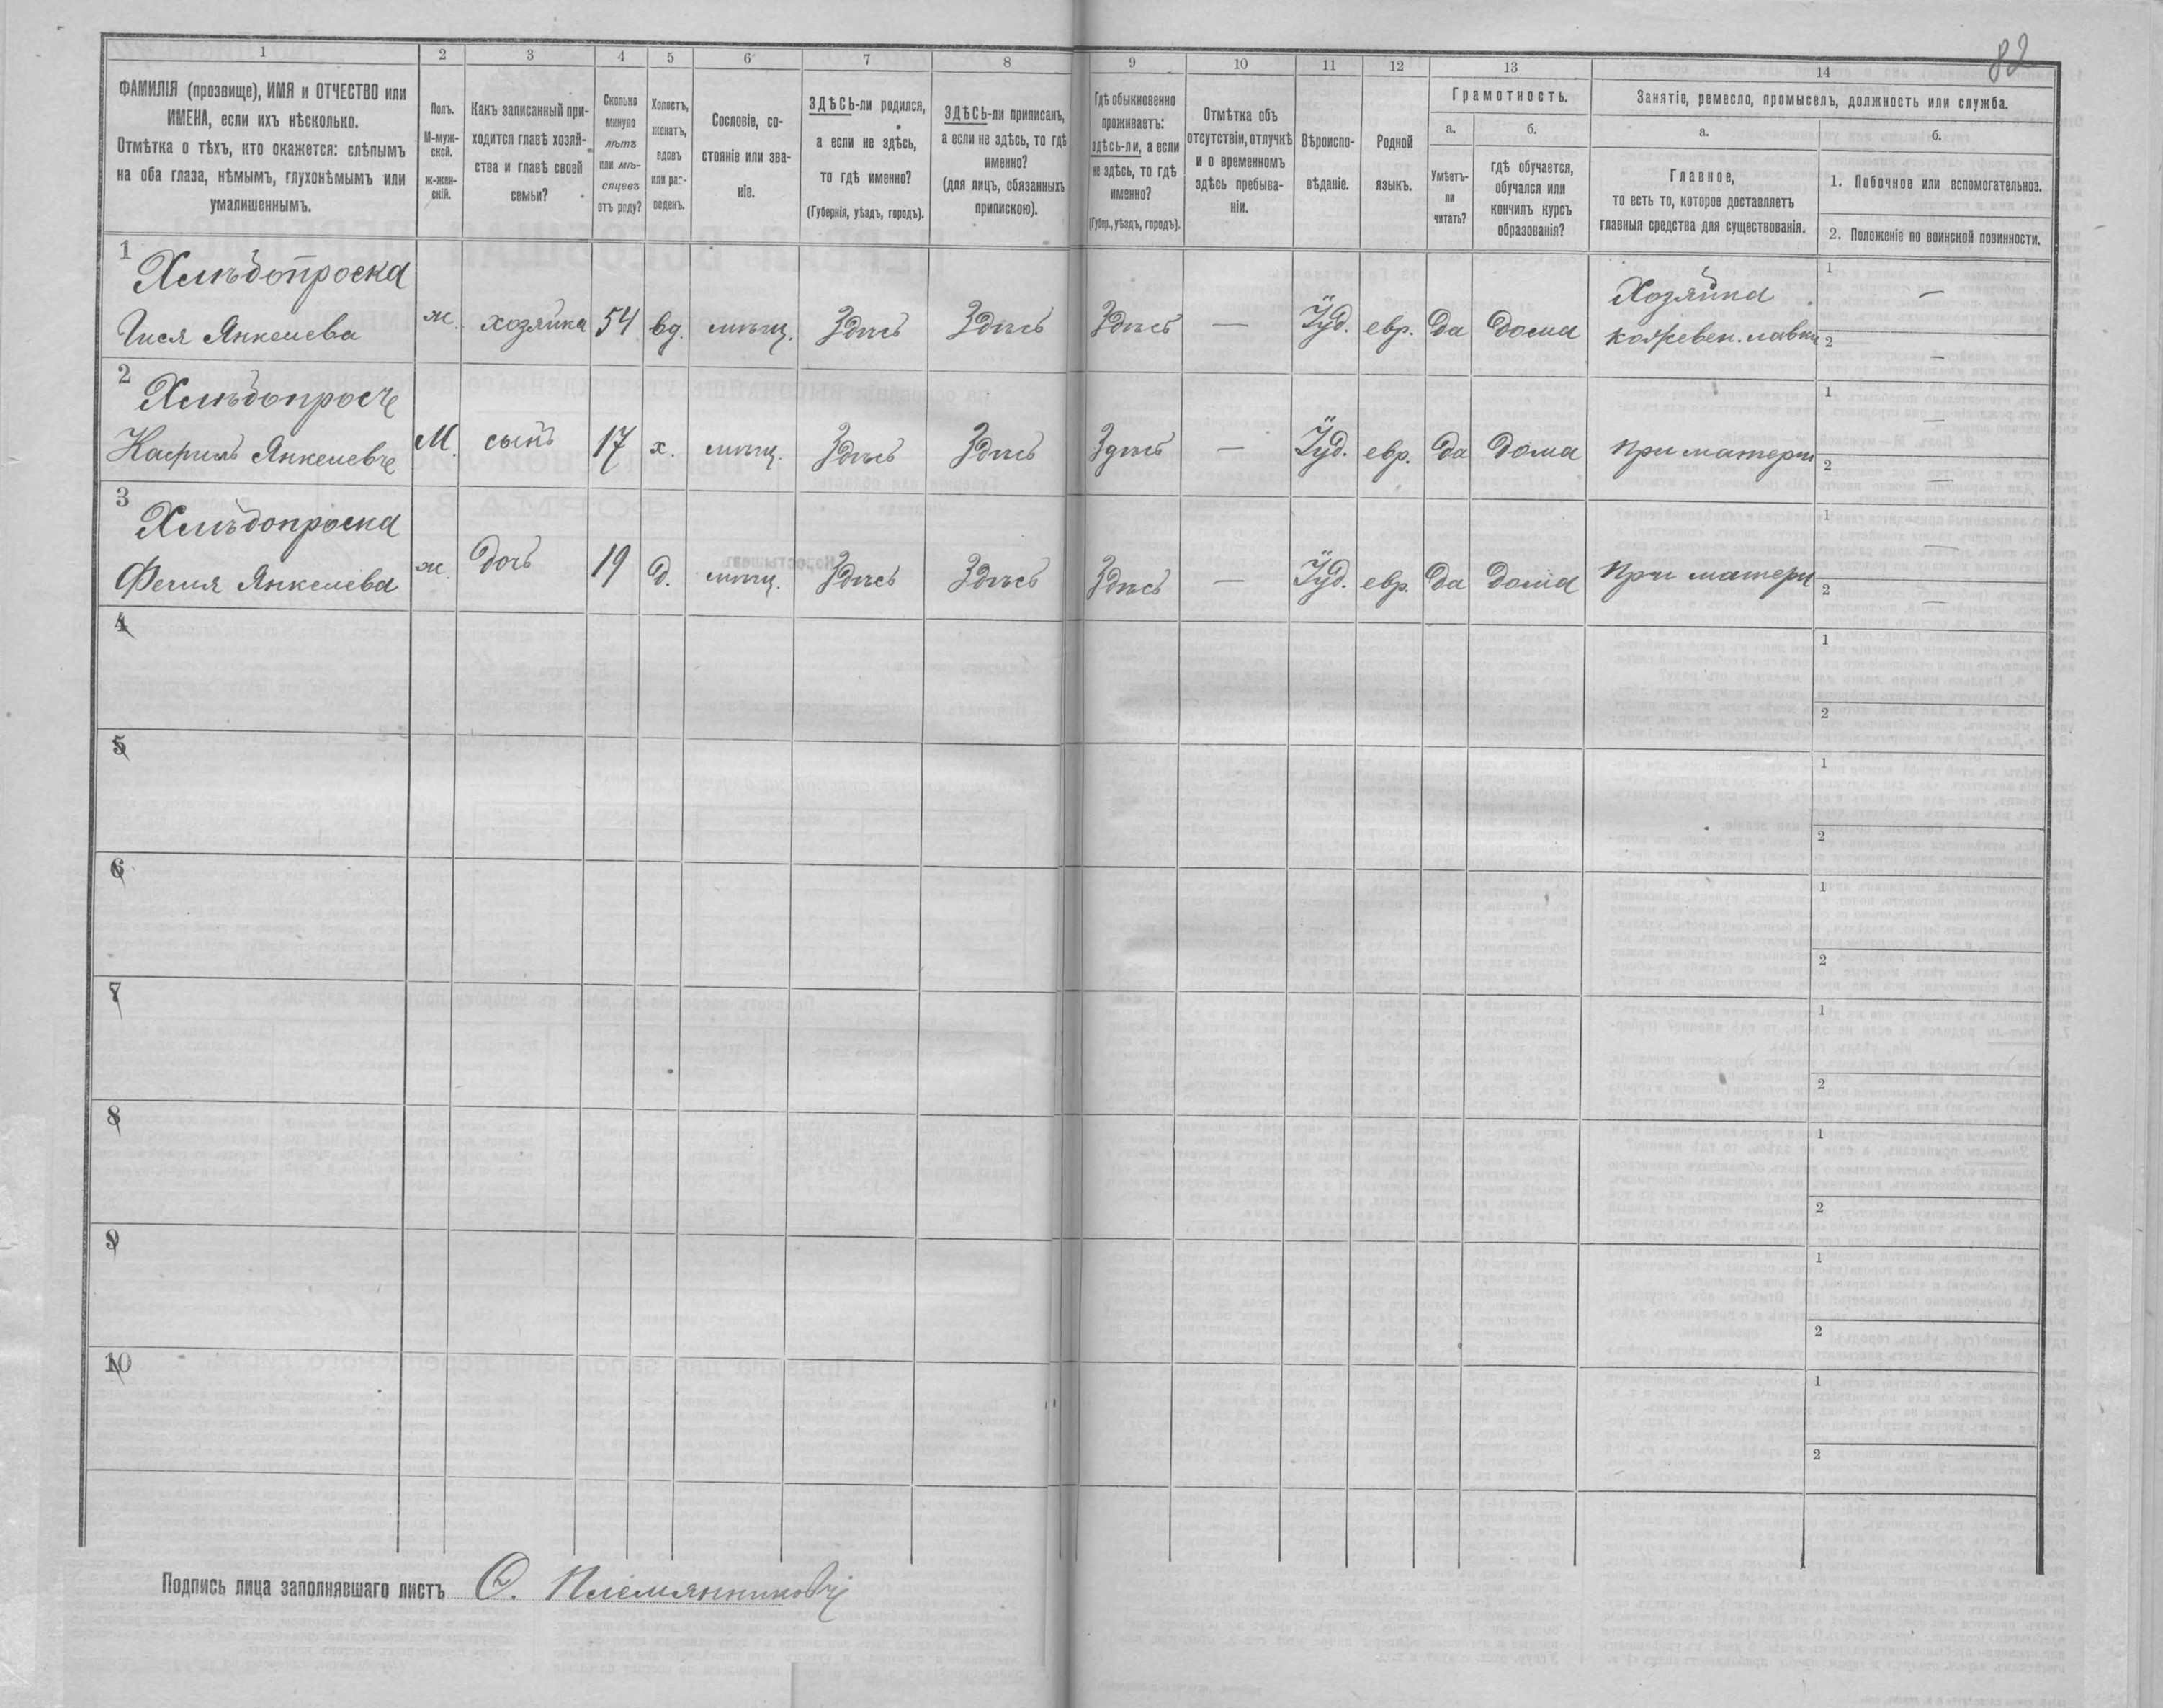 82
1 2 3 4 5 6 7 8 9 10 11 12 13 14
ФАМИЛІЯ (прозвище), ИМЯ и ОТЧЕСТВО или
ИМЕНА, если ихъ нѣсколько.
Отмѣтка о тѣхъ, кто окажется: слѣпымъ
на оба глаза, нѣмымъ, глухонѣмымъ или
умалишеннымъ.
Полъ.
М-муж-
ской.
ж-жен-
скій.
Какъ записанный при-
ходится главѣ хозяй-
ства и главѣ своей
семьи?
Сколько
минуло
лѣтъ
или мѣ-
сяцевъ
отъ роду?
Холостъ,
женатъ,
вдовъ
или раз-
веденъ.
Сословіе, со-
стояніе или зва-
ніе.
ЗДѢСЬ-ли родился,
а если не здѣсь,
то гдѣ именно?
(Губернія, уѣздъ, городъ).
ЗДѢСЬ-ли приписанъ,
а если не здѣсь, то гдѣ
именно?
(для лицъ, обязанныхъ
припискою).
Гдѣ обыкновенно
проживаетъ:
здѣсь-ли, а если
не здѣсь, то гдѣ
именно?
(Губер., уѣздъ, городъ).
Отмѣтка объ
отсутствіи, отлучкѣ
и о временномъ
здѣсь пребыва-
ніи.
Вѣроиспо-
вѣданіе.
Родной
языкъ.
Грамотность.
а.
Умѣетъ-
ли
читать?
б.
гдѣ обучается,
обучался или
кончилъ курсъ
образованія?
Занятіе, ремесло, промыселъ, должность или служба.
а.
Главное,
то есть то, которое доставляетъ
главныя средства для существованія.
б.
1. Побочное или вспомогательное.
2. Положеніе по воинской повинности.
1 Хлѣбопроска Хозяйка 1 —
Янкелева ж. хозяйка 54 вд. мѣщ. Здѣсь Здѣсь Здѣсь — Іуд. евр. да дома кожевен. лавки 2 —
2 Хлѣбопросъ 1 —
Касриль Янкелевъ М. сынъ 17 х. мѣщ. Здѣсь Здѣсь Здѣсь — Іуд. евр. да дома при матери 2 —
3 Хлѣбопроска 1 —
Янкелева ж. дочь 19 д. мѣщ. Здѣсь Здѣсь Здѣсь — Іуд. евр. да дома при матери 2 —
4 1
2
5 1
2
6 1
2
7 1
2
8 1
2
9 1
2
10 1
2
Подпись лица заполнявшаго листъ О. Племянниковъ